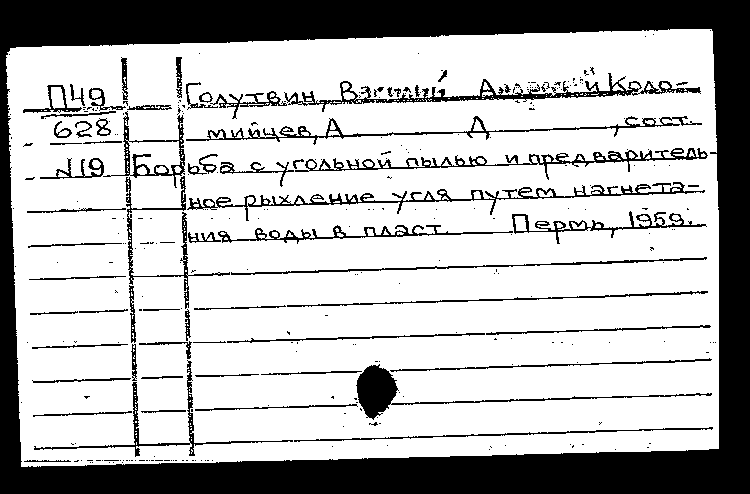 П49 Голутвин, Василий Андреевич и Коло-
628 мийцев, А Д , сост.
N19 Борьба с угольной пылью и предваритель-
ное рыхление угля путем нагнета-
ния воды в пласт. Пермь, 1959.